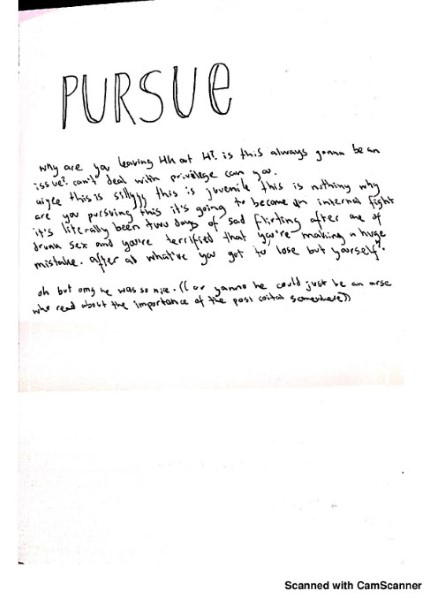 PURSUE
why are you leaving HH at H? is this always gonna be an
issue? can't deal with privilege can you.
this is sillyyy this is juvenile this is nothing why
are you pursuing this it's going to become an internal fight
it's literally been two days of sad flirting after one of
drunk sex and you're terrified that you're making a huge
mistake. after all what've you got to lose but yourself?
oh but omg he was so nice. ((or yanno he could just be an arse
who read about the importance of the post coital somewhere))
Scanned with CamScanner